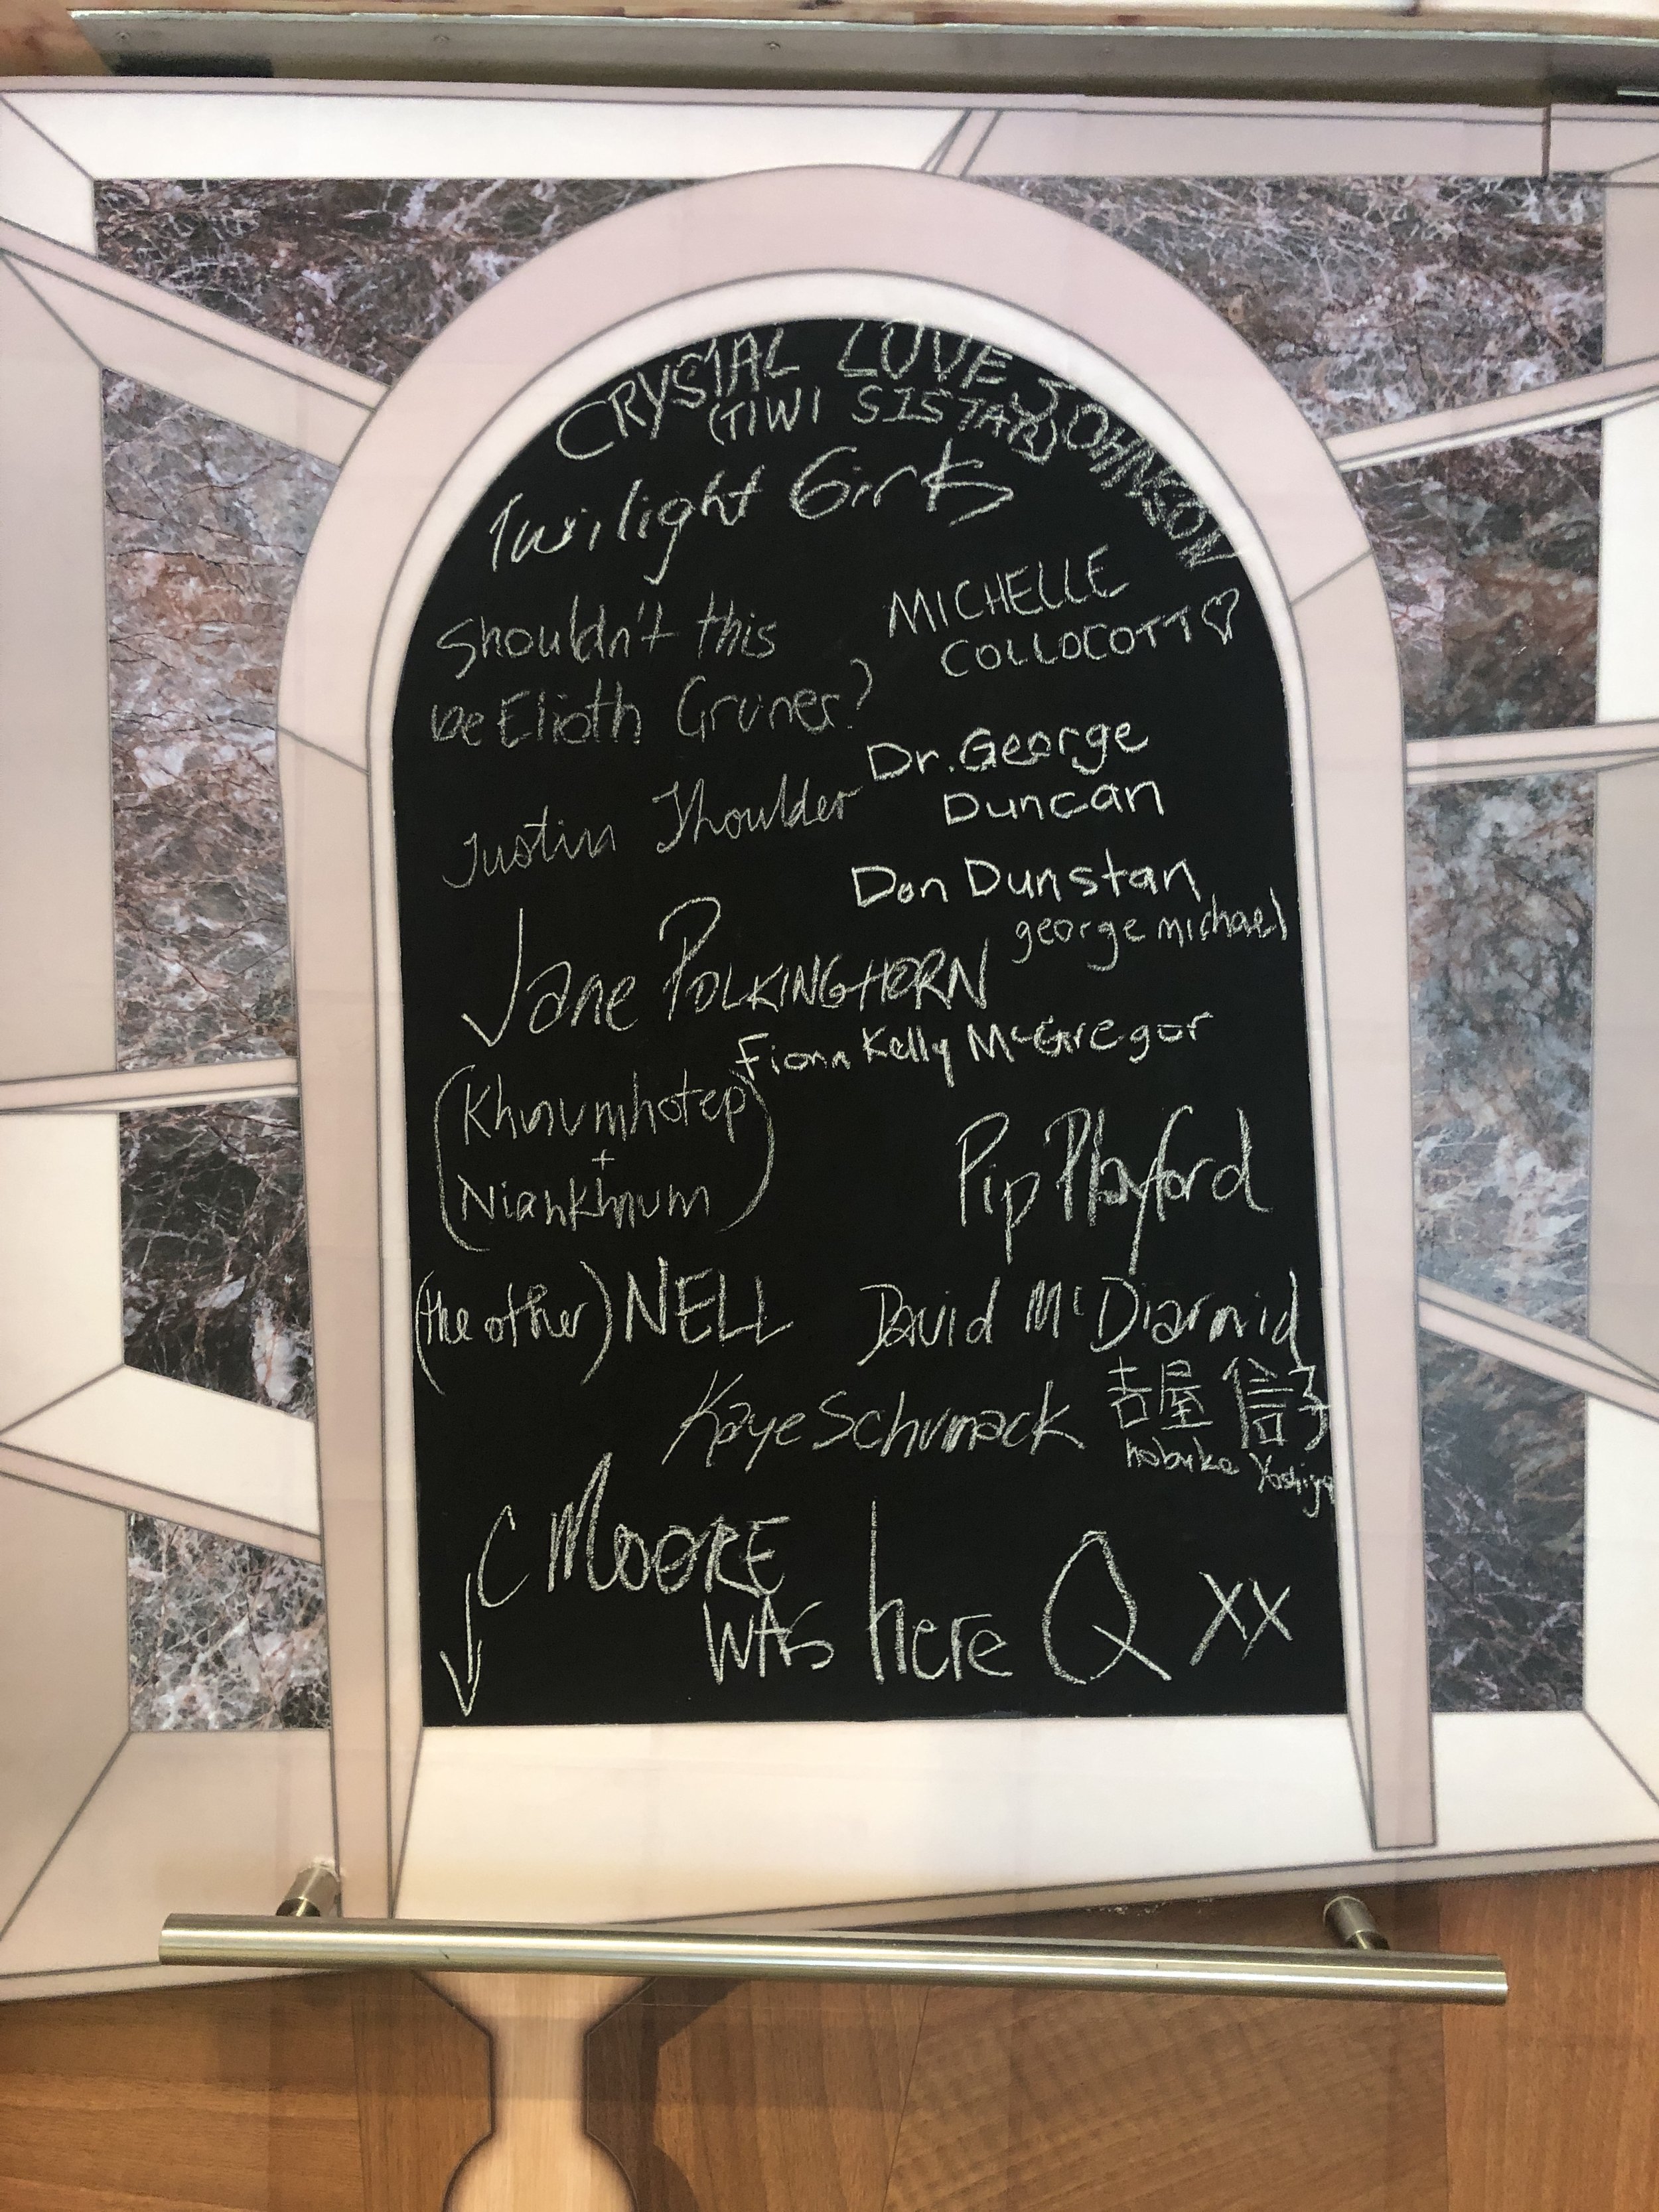 CRYSTAL LOVE JOHNSON
(TIWI SISTAR)
Twilight Girls
Shouldn't this
be Elioth Gruner?
MICHELLE
COLLOCOTT♡
Dr. George
Duncan
Justin Shoulder
Don Dunstan
george michael
Jane POLKINGHORN
Fiona Kelly McGregor
(Khnumhotep
+
Niankhnum)
Pip Playford
(the other) NELL
David McDiarmid
Kaye Schumack
吉屋 信子
nobuko Yoshiya
C MOORE
WAS here Q XX